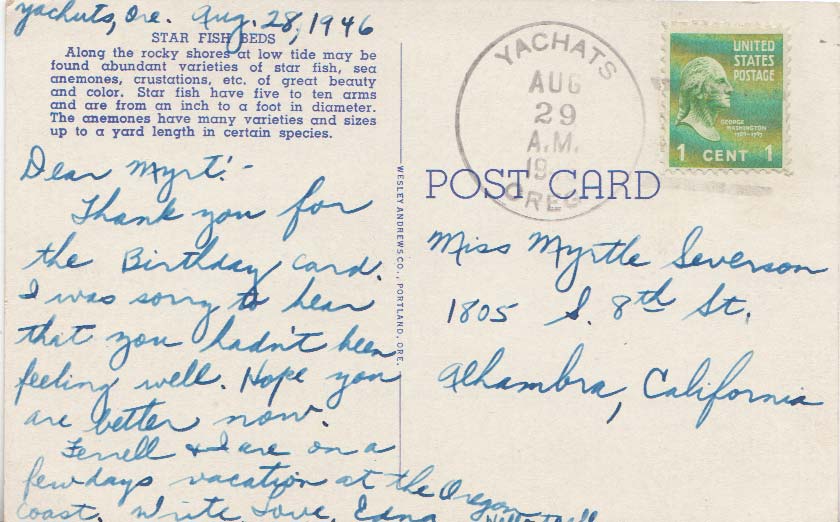 Yachats, Ore. Aug. 28, 1946
STAR FISH BEDS
Along the rocky shores at low tide may be
found abundant varieties of star fish, sea
anemones, crustations, etc. of great beauty
and color. Star fish have five to ten arms
and are from an inch to a foot in diameter.
The anemones have many varieties and sizes
up to a yard length in certain species.
Dear Myrt:-
Thank you for
the Birthday card.
I was sorry to hear
that you hadn't been
feeling well. Hope you
are better now.
Ferrell & I are on a
few days vacation at the Oregon
coast. Write. Love, Edna
WESLEY ANDREWS CO., PORTLAND, ORE.
YACHATS
AUG
29
A.M.
19
OREG
UNITED
STATES
POSTAGE
GEORGE
WASHINGTON
1 CENT 1
POST CARD
Miss Myrtle Severson
1805 S. 8th St.
Alhambra, California